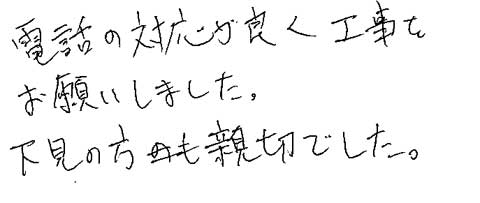 電話の対応が良く工事を
お願いしました。
下見の方も親切でした。